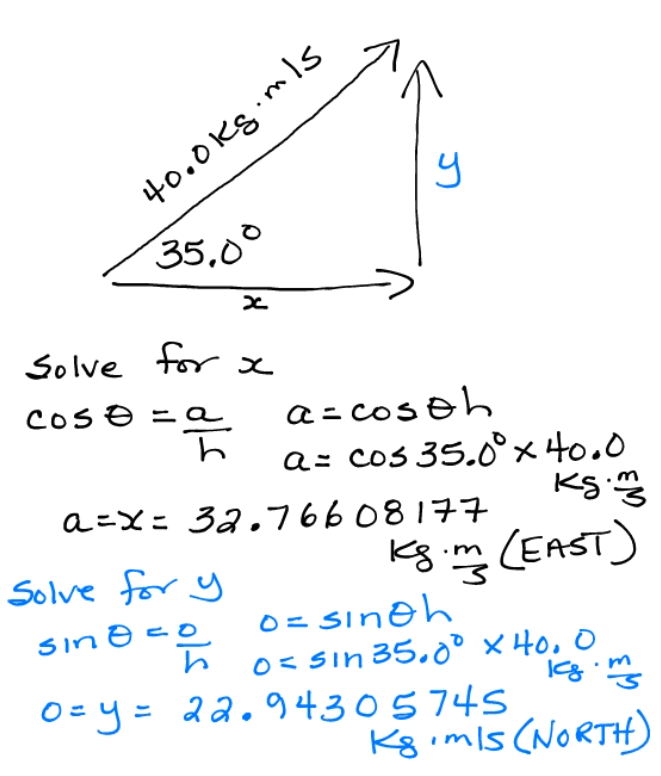 40.0 kg·m/s
y
35.0°
x
Solve for x
cos θ = a/h   a = cos θ h
a = cos 35.0° × 40.0 kg·m/s
a = x = 32.76608177 kg·m/s (EAST)
Solve for y
sin θ = o/h   o = sin θ h
o = sin 35.0° × 40.0 kg·m/s
o = y = 22.94305745 kg·m/s (NORTH)